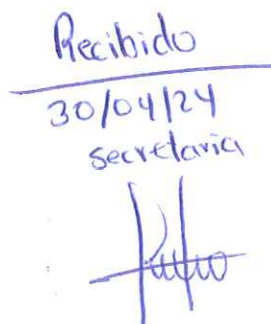 Recibido
30/04/24
secretaria